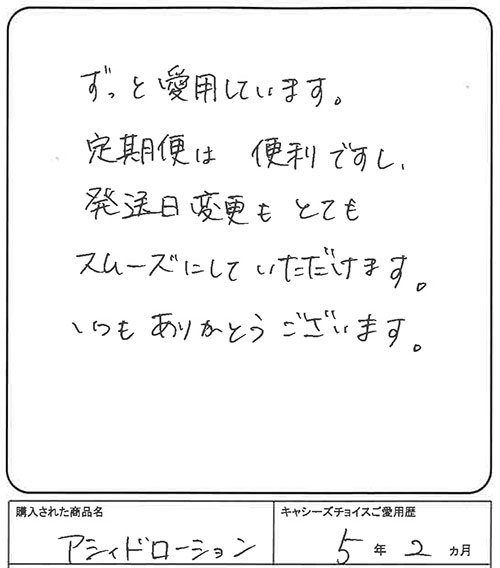 ずっと愛用しています。
定期便は 便利ですし、
発送日変更も とても
スムーズにして いただけます。
いつも ありがとうございます。
購入された商品名
キャシーズチョイスご愛用歴
アシィドローション
5年2ヵ月